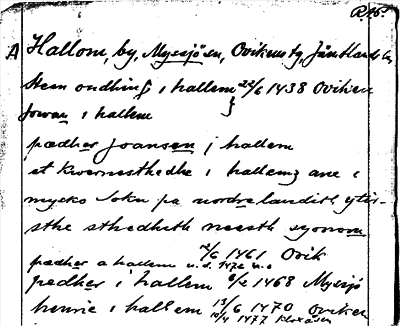 R 46.
A Hallom, by, Myssjö sn, Ovikens tg, Jämtlands l,
Steen ondhing i hallem 22/6 1438 Oviken
Jowan i hallem }
pædher Joansen j hallem
et kwernesthedhe i hallemz ane i
mycko Soku pa nordre landit yter-
sthe sthedheth neesth syonom
pædher a hallem 12/6 1461 Ovik
u.d. 1472
pedher i hallem 6/2 1468 Myssjö
hennic i hallem 13/6 1470 Oviken
10/4 1477